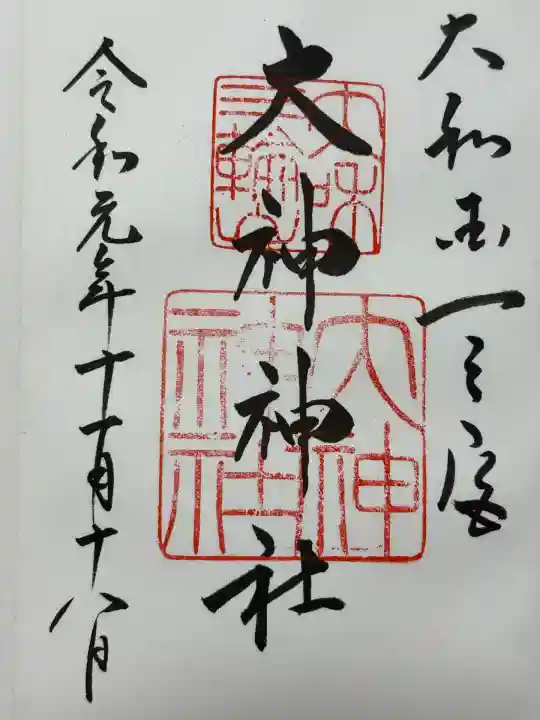 大和国一之宮
大神神社
令和元年十一月十八日
三輪
大神神社